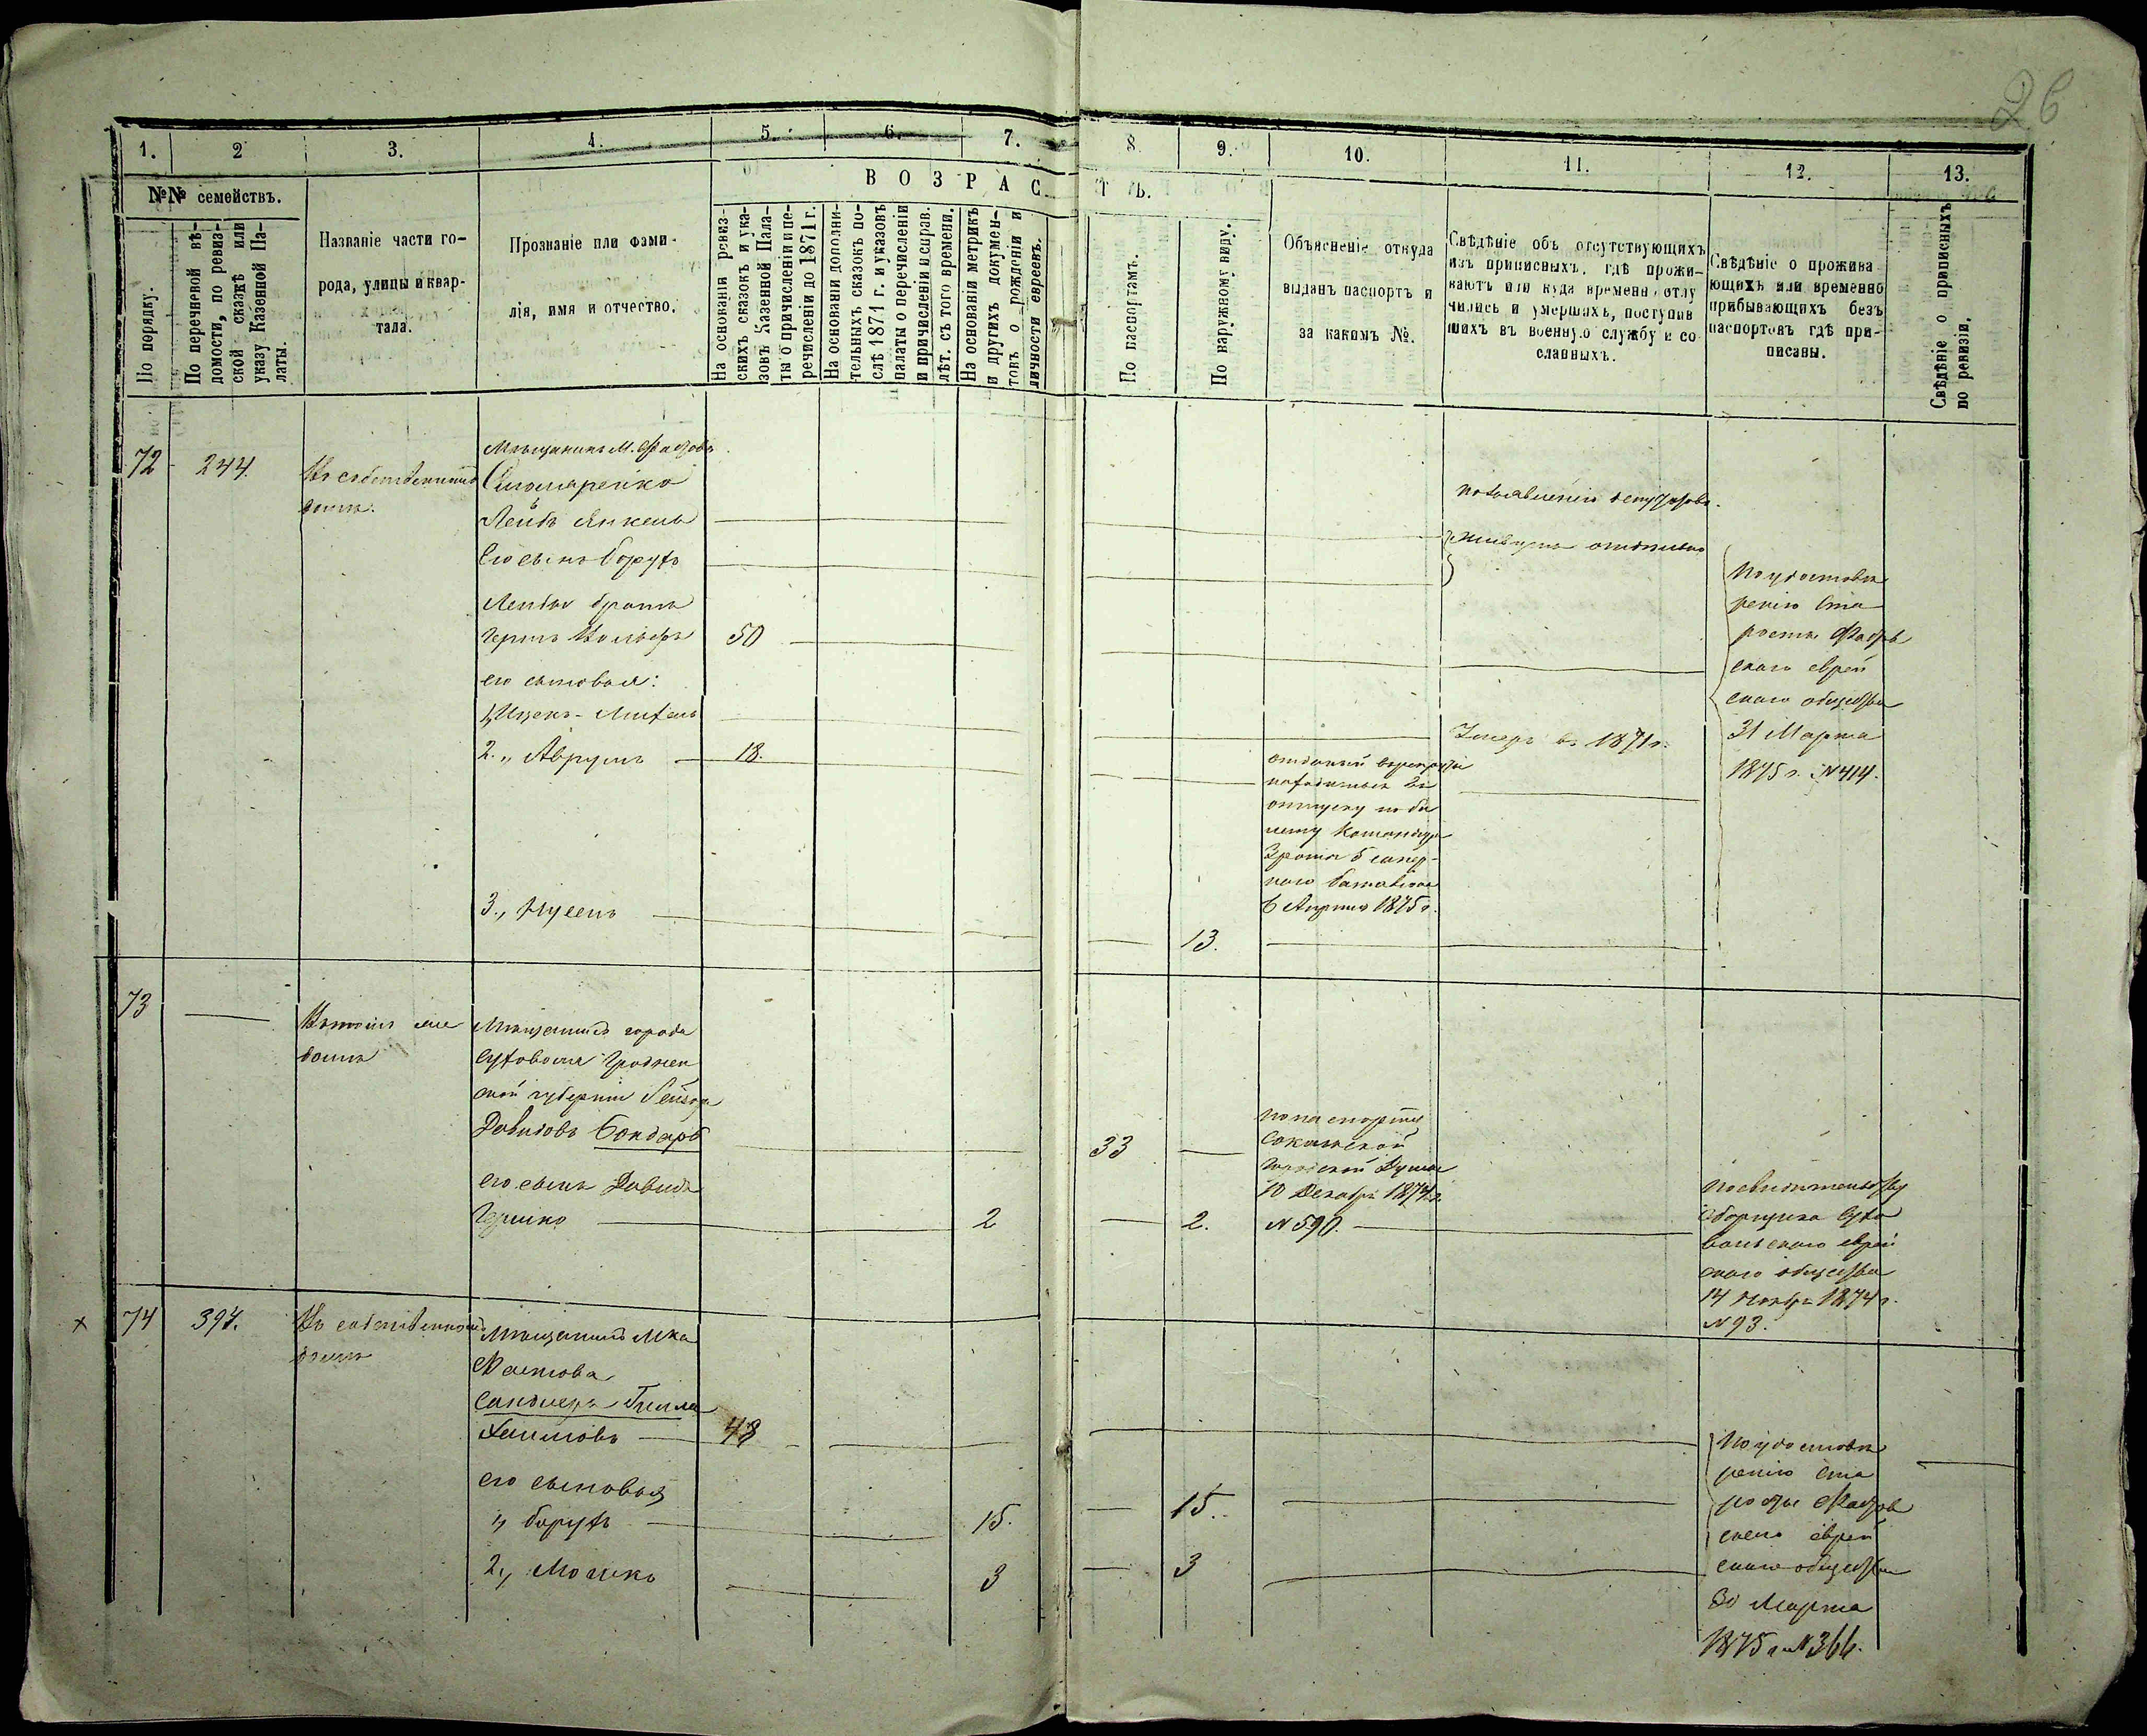 26
1.
2
3.
4.
5.
6.
7.
8.
9.
10.
11.
12.
13.
№№ семействъ.
По порядку.
По перечневой вѣ-
домости, по ревиз-
ской сказкѣ или
указу Казенной Па-
латы.
Названіе части го-
рода, улицы и квар-
тала.
Прозваніе или фами-
лія, имя и отчество.
ВОЗРАС
ТЪ.
На основаніи ревиз-
скихъ сказокъ и ука-
зовъ Казенной Пала-
ты о причисленіи и пе-
речисленіи до 1871 г.
На основаніи дополни-
тельныхъ сказокъ по-
слѣ 1871 г. и указовъ
палаты о перечисленіи
и причисленіи и справ.
лѣт. съ того времени.
На основаніи метрикъ
и другихъ докумен-
товъ о рожденіи и
личности евреевъ.
По паспортамъ.
По наружному виду.
Объясненіе откуда
выданъ паспортъ и
за какимъ №.
Свѣдѣніе объ отсутствующихъ
изъ приписныхъ, гдѣ прожи-
ваютъ или куда времен. отлу
чились и умершихъ, поступив
шихъ въ военную службу и со
сланныхъ.
Свѣдѣніе о прожива
ющихъ или временно
прибывающихъ безъ
паспортовъ гдѣ при-
писаны.
Свѣдѣніе о приписныхъ
по ревизіи.
72
244.
Въ собственномъ
домѣ.
Мѣщанинъ М. Фастова
Пономаренко
Лейбъ Янкель
Его сынъ Борухъ
Лейбы братъ
Гершъ Вольфъ
50
его сыновья:
1, Ицекъ-Михель
2. „ Аврумъ
18.
3., Нусенъ
13.
живутъ отдѣльно
Умеръ въ 1871 г.
отпуску по би
лету Командира
3 роты 5 сапер-
наго баталіона
6 Апрѣля 1875 г.
По удостовѣ
ренію Ста
росты Фастов
скаго еврей
скаго общества
31 Марта
1875 г. №414.
73
Въ томъ же
домѣ
Мѣщанинъ города
Суховоля Гроднен
ской губерніи Лейзоръ
Давидовъ Бондаръ
33
его сынъ Давидъ
Гершко
2
2.
По паспорту
Сокольской
Городской Думы
10 Декабря 1874 г.
№ 590.
По свидѣтельству
Сборщика Сухо
вольскаго еврей
скаго общества
14 Ноября 1874 г.
№93.
х
74
397.
Въ собственномъ
домѣ
Мѣщанинъ Мка
Фастова
Сандлеръ
Хаимовъ
48
его сыновья
1, Борухъ
15.
15.
2, Мошко
3
3
По удостовѣ
ренію Ста
росты Фастов
скаго еврей
скаго общества
30 Марта
1875 г. №366.